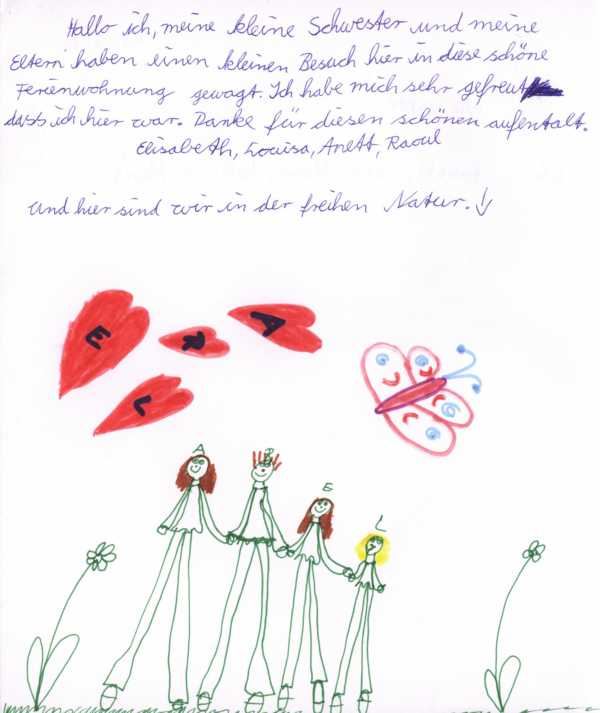 Hallo ich, meine kleine Schwester und meine
Eltern haben einen kleinen Besuch hier in diese schöne
Ferienwohnung gewagt. Ich habe mich sehr gefreut
dass ich hier war. Danke für diesen schönen aufentalt.
Elisabeth, Louisa, Anett, Raoul
und hier sind wir in der freihen Natur.
E R A
L
A R E L